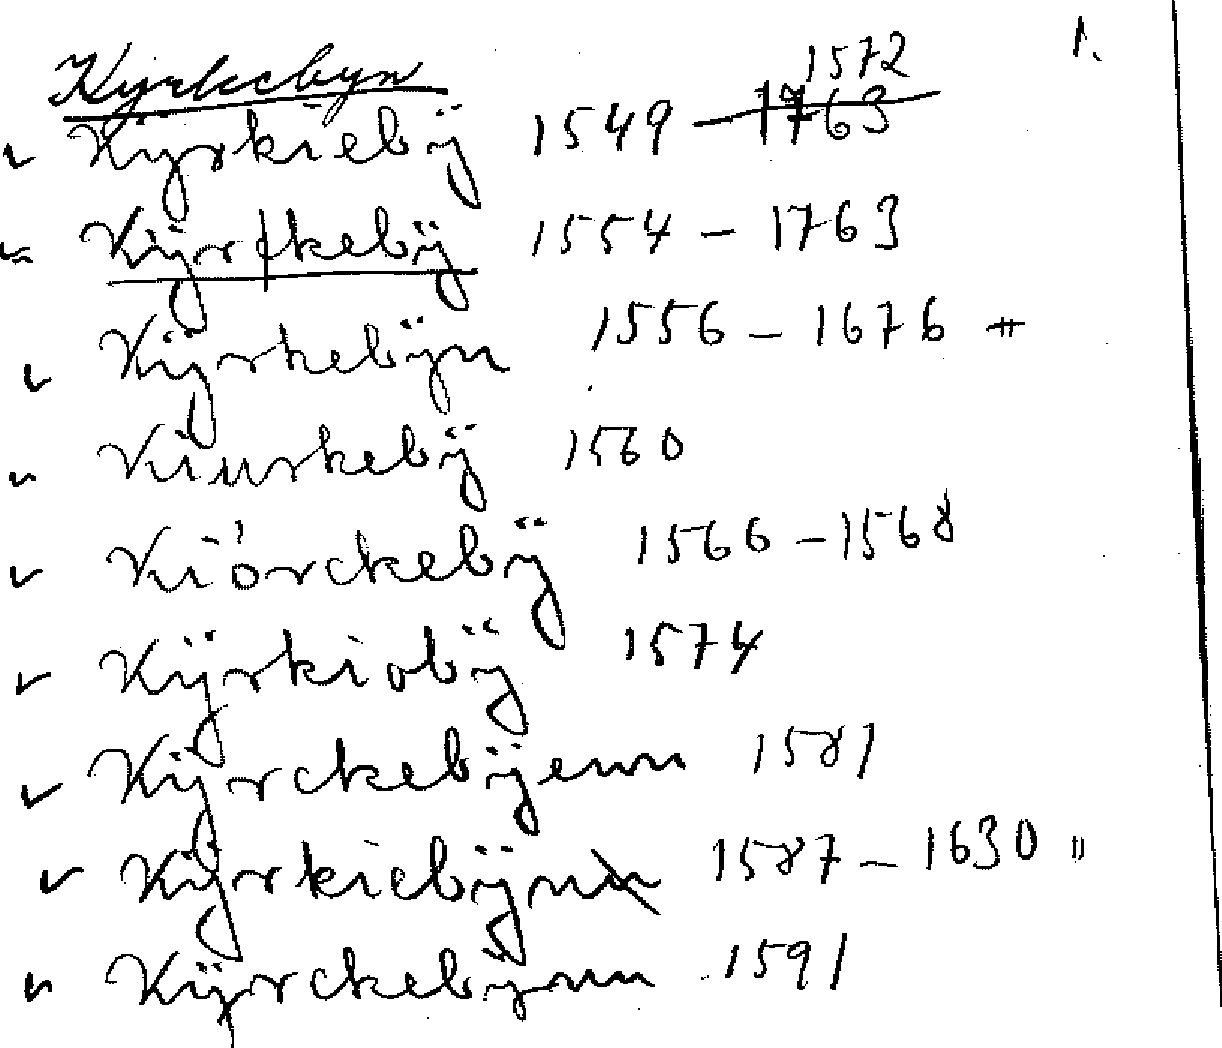 1.
Kyrkebyn
1572
Kÿrkiebÿ 1549 – 1763
Kÿrkebÿ 1554 – 1763
Kÿrkebÿn 1556 – 1676 #
Kiurkebÿ 1560
Kiörckebÿ 1566 – 1568
Kÿrkiobÿ 1574
Kÿrckebÿenn 1581
Kÿrkiebÿnn 1587 – 1630 "
Kÿrckebÿnn 1591